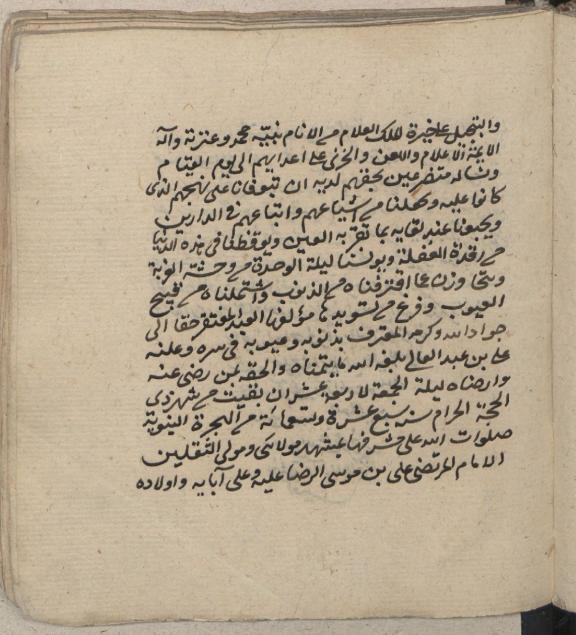 والتبجيل على خيرة الملك العلام من الانام نبيّه محمد وعترته وآله
الايمة الاعلام واللعن والخزى على اعدايهم الى يوم القيام
ونساله متضرعين بحقهم لديه ان يتوفانا على نهجهم الذى
كانوا عليه ويجعلنا من اشياعهم واتباعهم فى الدارين
ويحبونا عند لقايه بما تقرّ به العين ويوقظنا فى هذه الدنيا
من رقدة الغفلة ويونسنا ليلة الوحدة من وحشة الغربة
ويتجاوز عما اقترفناه من الذنوب واشتملنا من قبيح
العيوب وفرغ من تسويدها مؤلفها العبد المفتقر حقا الى
جواد الله وكرمه المعترف بذنوبه وعيوبه فى سره وعلنه
على بن عبد العالى بلغه الله ما يتمناه والحقه بمن رضى عنه
وارضاه ليلة الجمعة لاربعة عشر ان بقيت من شهر ذى
الحجة الحرام سنة سبع عشرة وتسعمائة من الهجرة النبوية
صلوات الله على مشرفها بمشهد مولاى ومولى الثقلين
الامام المرتضى على بن موسى الرضا عليه وعلى آبايه واولاده